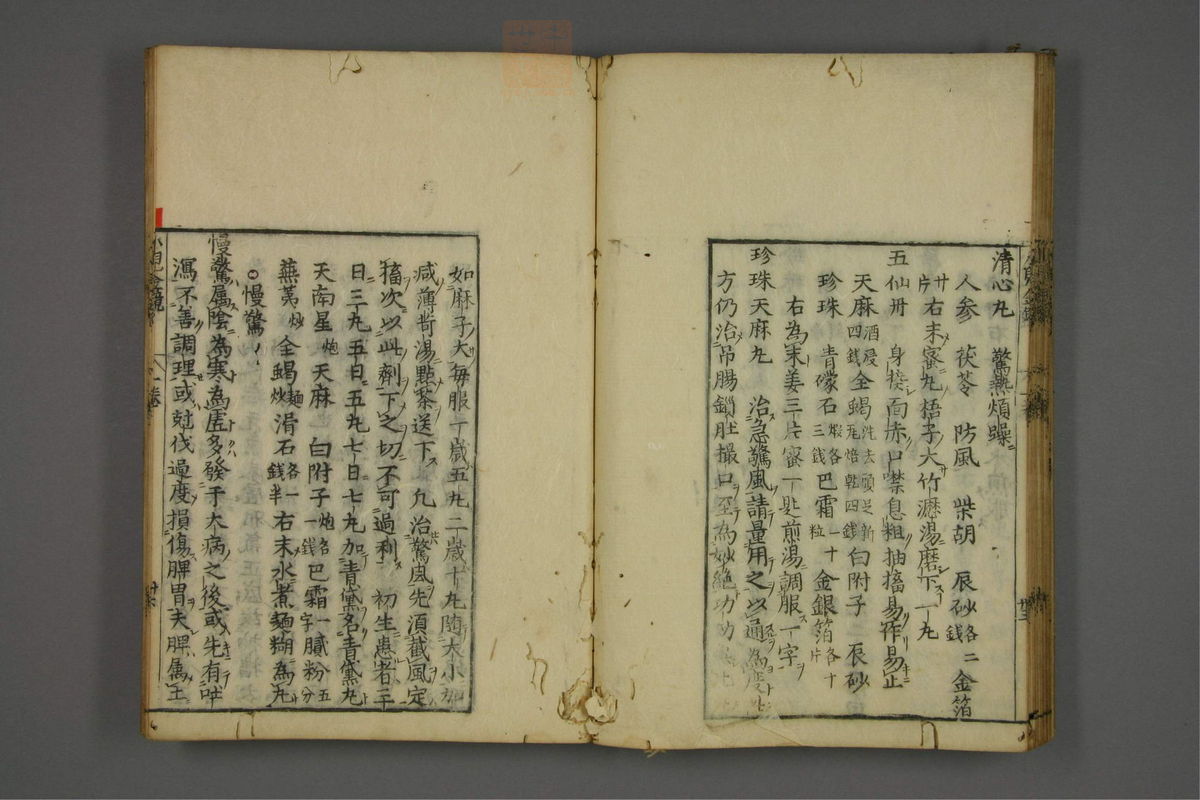 清心丸 驚熱煩躁
人参 茯苓 防風 柴胡 辰砂各二銭 金箔
廿片 右末蜜丸梧子大竹瀝湯磨下一丸
五仙丹 身接面赤口噤息粗抽搐易作易止
天麻酒浸四銭 全蝎洗去頭足新瓦焙乾四銭 白附子二 辰砂
珍珠 青礞石煅各三銭 巴霜一十粒 金銀箔各十片
右為末姜三片蜜一匙煎湯調服一字
珍珠天麻丸 治急驚風請量用之以通為度
方仍治吊腸鎖肚撮口至為妙絶功
如麻子大毎服一歳五丸二歳十丸随大小加
减薄荷湯點茶送下 凡治驚風先須截風定
搐次以此劑下之切不可過利 初生患者三
日三丸五日五丸七日七丸加青黛名青黛丸
天南星炮 天麻 白附子炮各一銭 巴霜一 膩粉五分
蕪荑炒 全蝎麺炒 滑石各一銭半 右末水煮麺糊為丸
慢驚
慢驚属陰為寒為虚多發于大病之後或先有吐
瀉不善調理或尅伐過度損傷脾胃夫脾属土